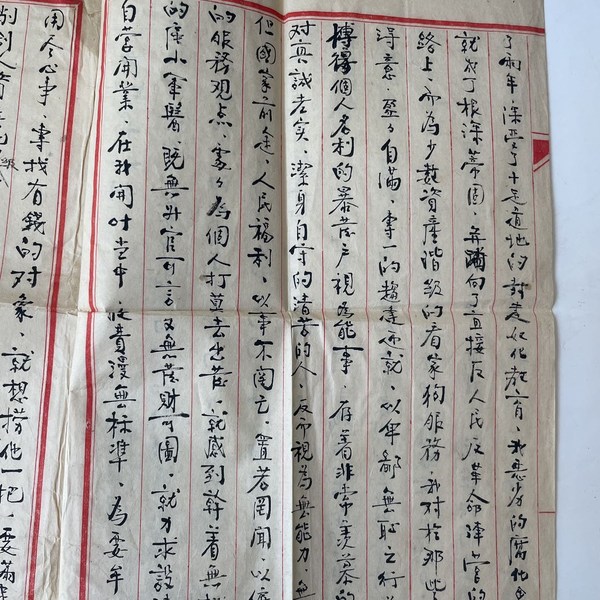 了兩年，深受了十足道地的封建奴化教育，我思步的腐化
就成了根深蒂固，并踏向了直接反人民反革命陣营的
路上，而為少数資產階级的看家狗服務，我对於那些
得意，盈々自滿，專一的趨達迎就，以卑鄙無恥之行
博得個人名利的暴發户視為能事，存着非常羡慕的
对真誠老实，潔身自守的清苦的人，反而視為無能力，
但國家前途，人民福利，以事不関己，置若罔闻，以
的服務观点，處々為個人打算去出發，就感到幹着無
的廛小軍醫，既無升官可言又無發财可圖，就才求設
自营開業，在我開时当中，收費漫無标準，為要牟
用尽心事，專找有錢的对象，就想捞他一把，要